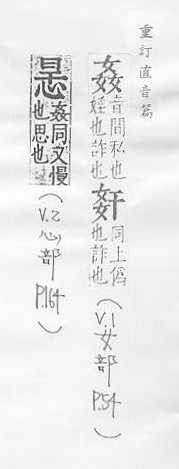 重訂直音篇
姦 音間私也
婬也詐也
姧 同上偽
也詐也
(V.1女部 P.54)
姦同又慢
也思也
(V.2心部 P.164)